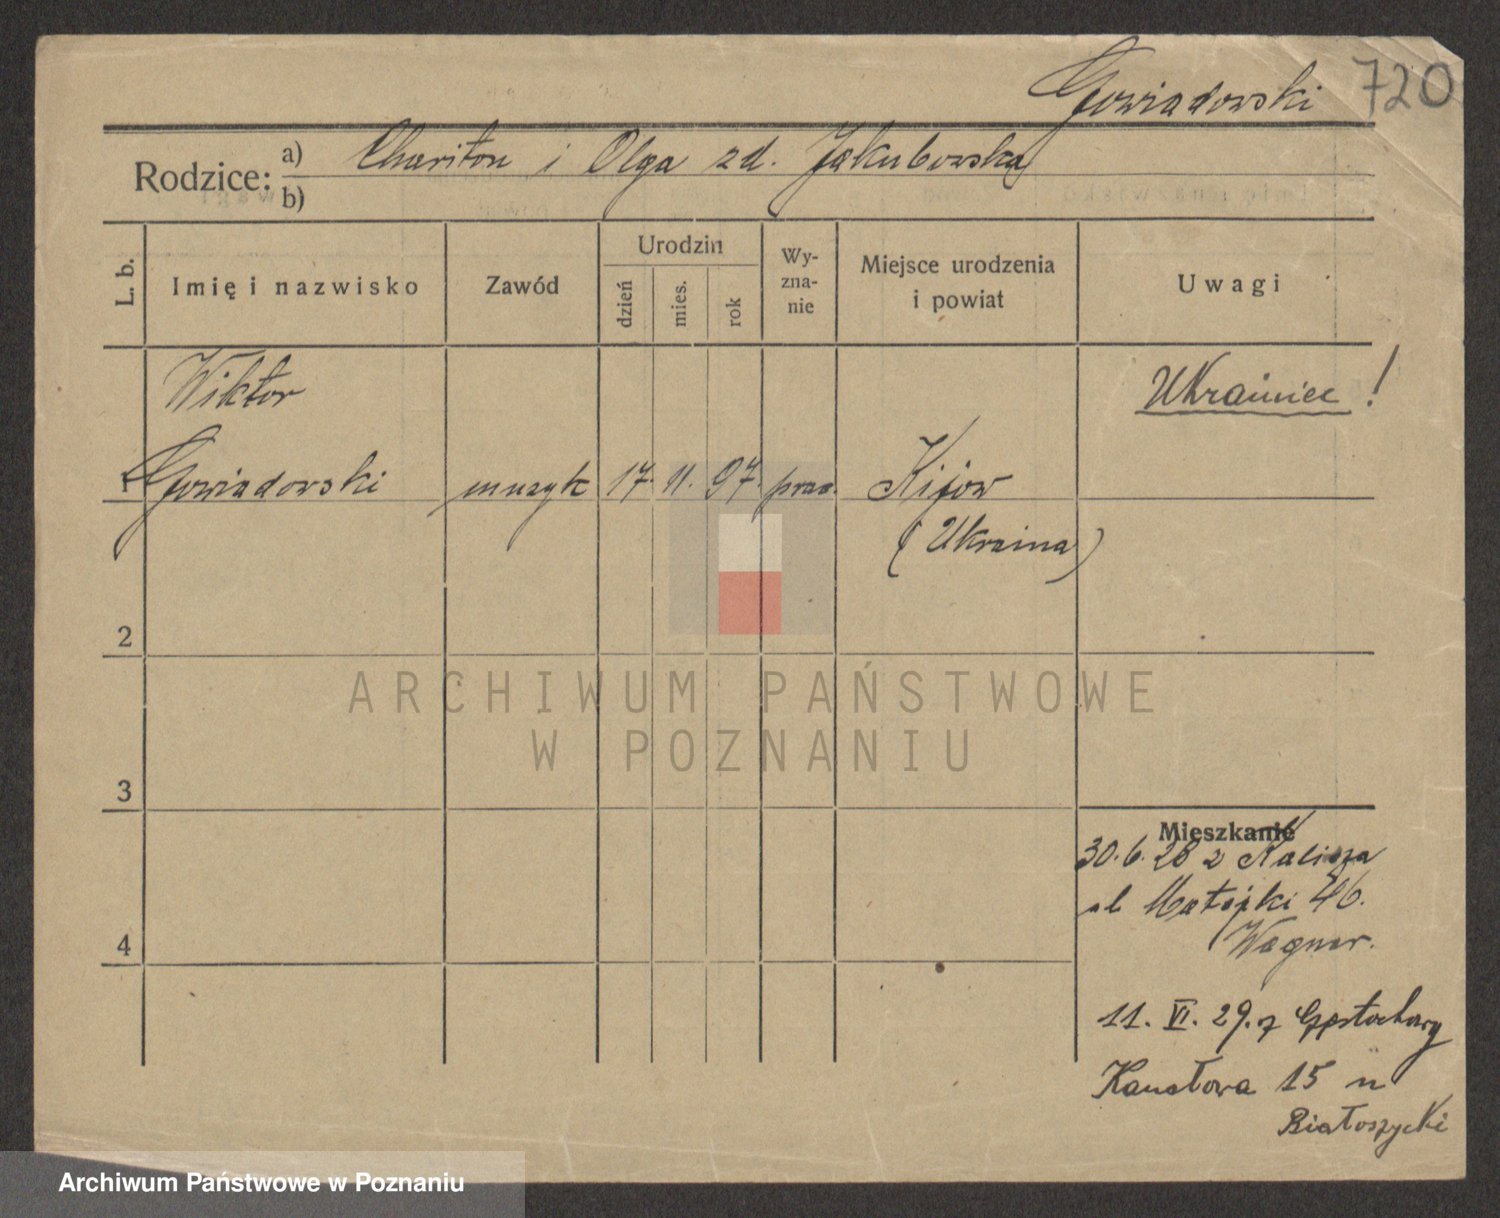 Gowiadowski 720
Rodzice: a) Chariton i Olga zd. Jakubowska
b)
L. b.
Imię i nazwisko
Zawód
Urodzin
dzień
mies.
rok
Wy-
zna-
nie
Miejsce urodzenia
i powiat
Uwagi
Wiktor
Ukrainiec !
1 Gowiadowski muzyk 17. 11. 97. praw. Kijow
(Ukraina)
2
3
4
Mieszkanie
30.6.28 z Kalisza
ul Matejki 46.
Wagner.
11. VI. 29. z Częstochowy
Kanałowa 15 u
Białoszycki
ARCHIWUM PAŃSTWOWE
W POZNANIU
Archiwum Państwowe w Poznaniu